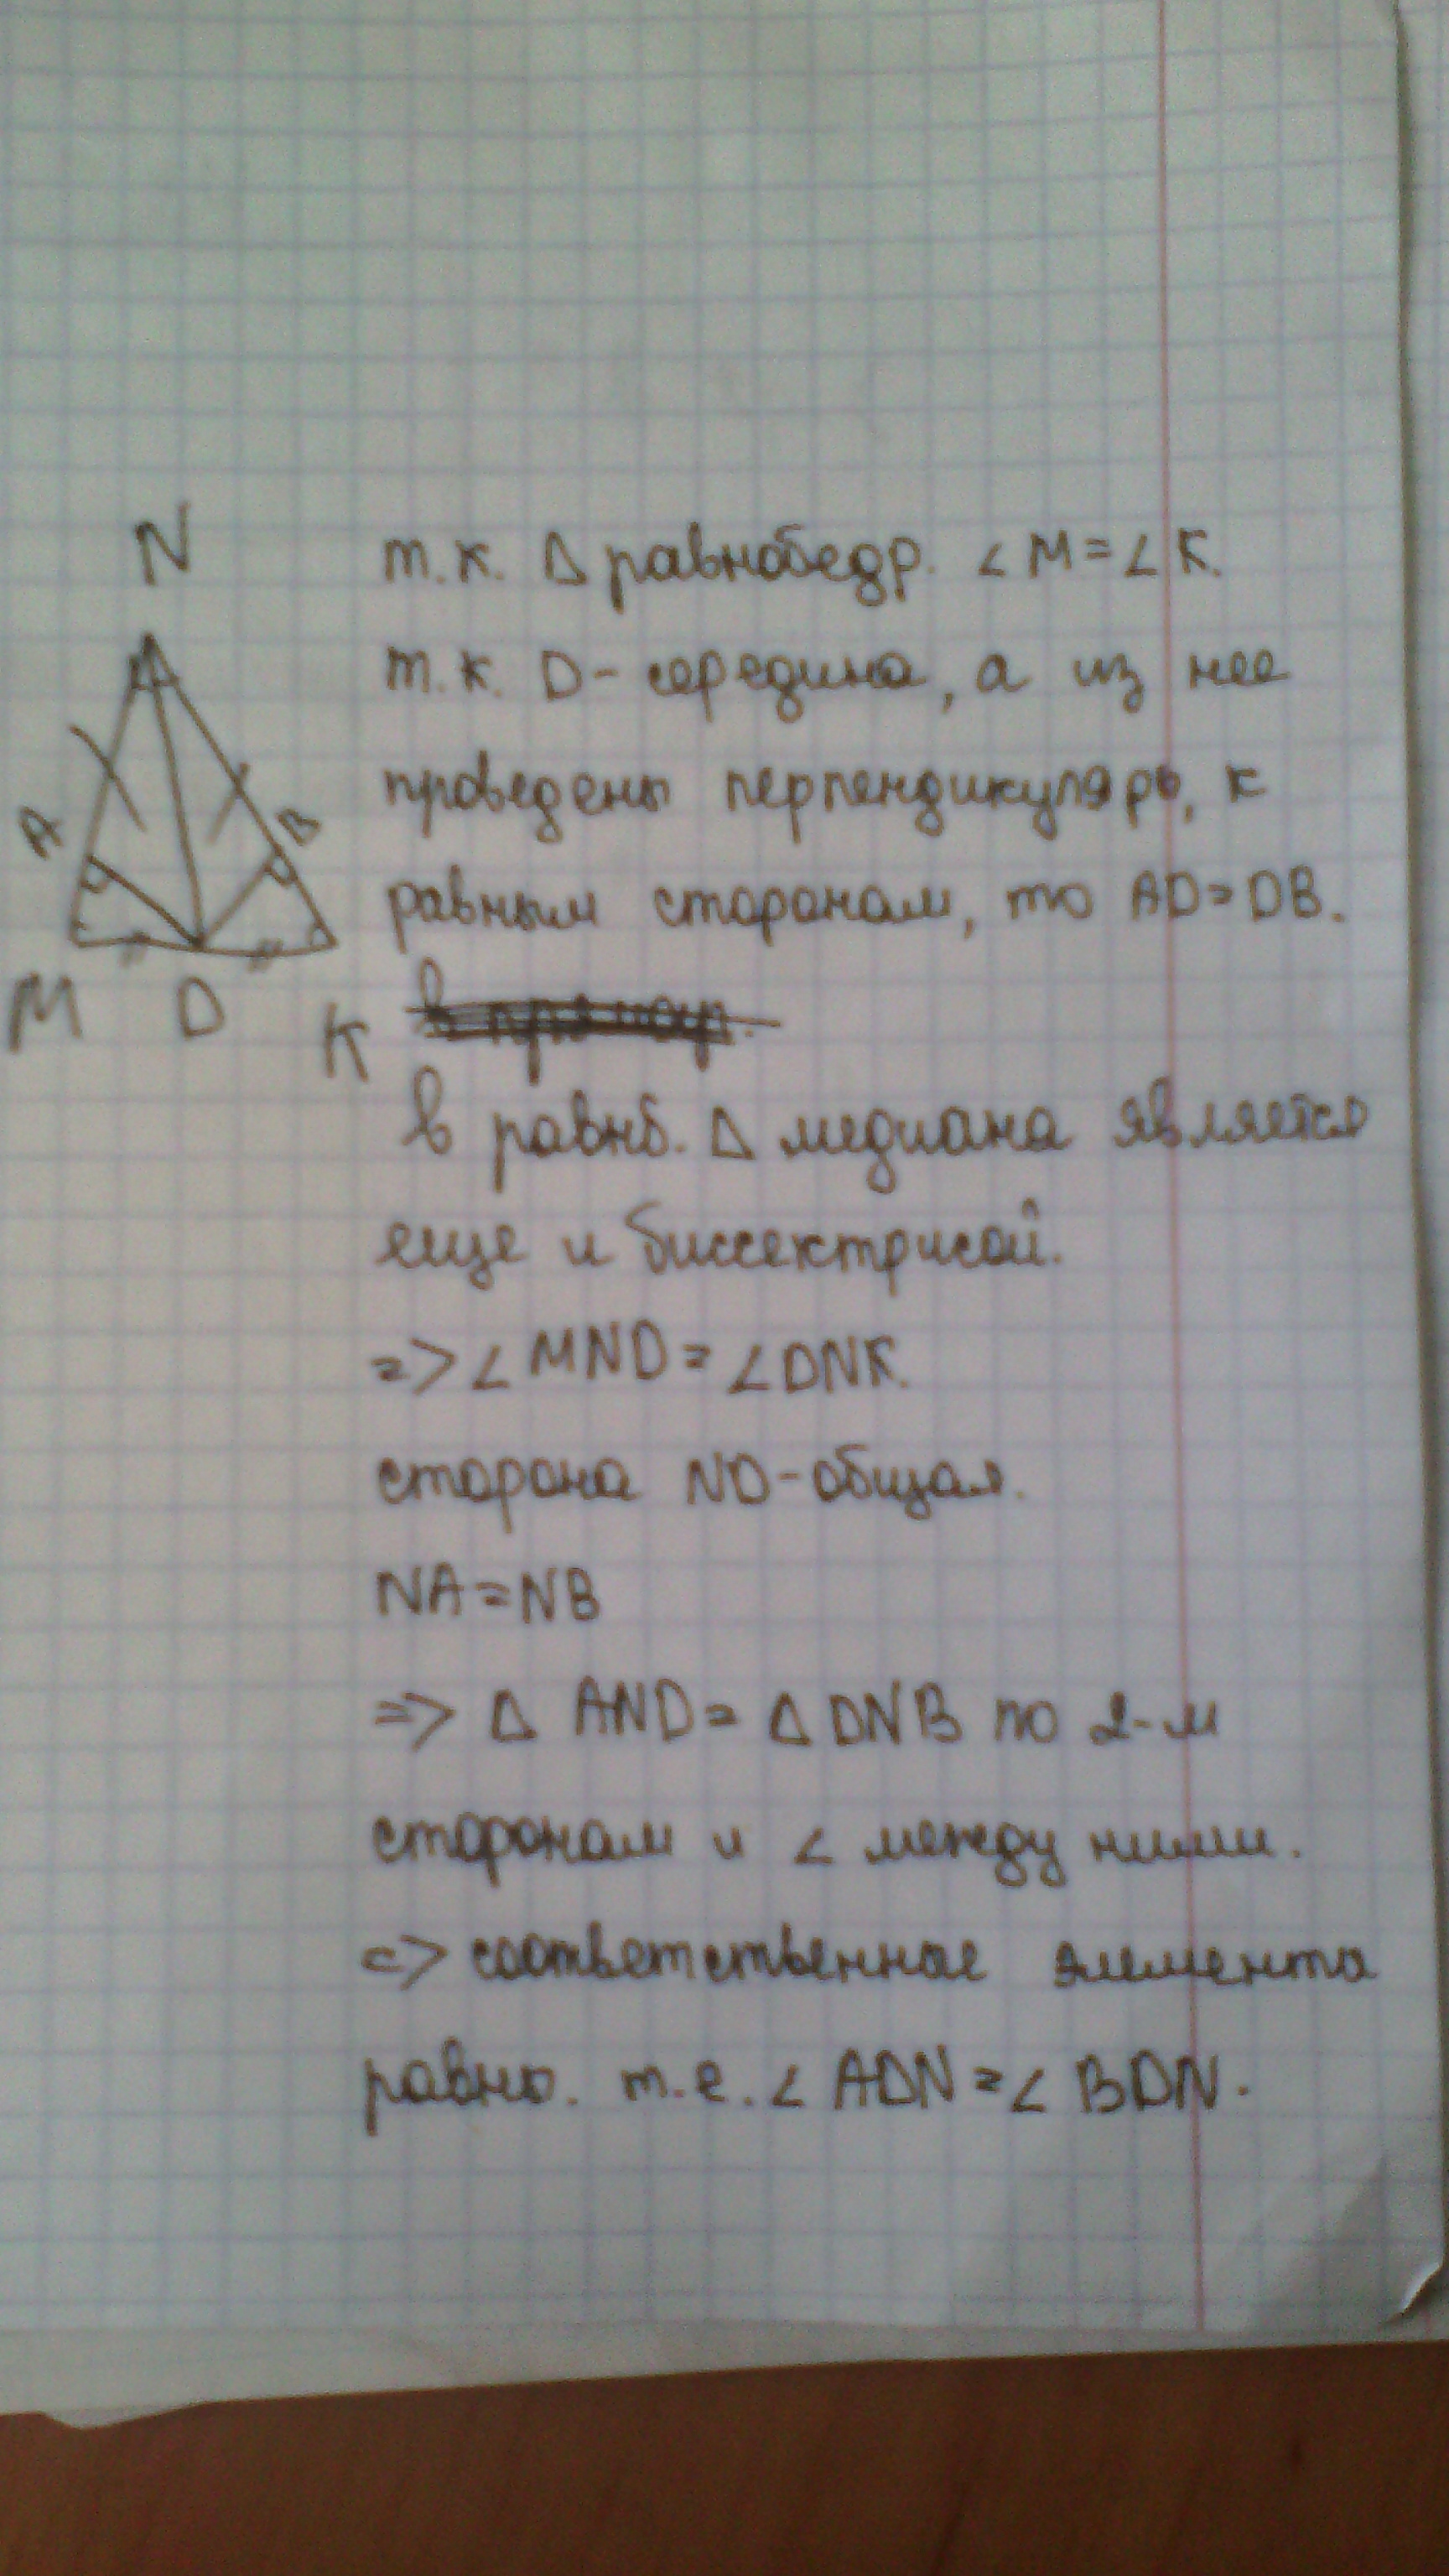 N
A
B
M
D
K
т.к. Δ равнобедр. ∠M=∠K.
т.к. D-середина, а из нее
проведены перпендикуляры, к
равным сторонам, то AD=DB.
в равнб. Δ медиана является
еще и биссектрисой.
=> ∠MND=∠DNK.
сторона ND-общая.
NA=NB
=> Δ AND=Δ DNB по 2-м
сторонам и ∠ между ними.
=> соответственное элемента
равны. т.е. ∠ADN=∠BDN.